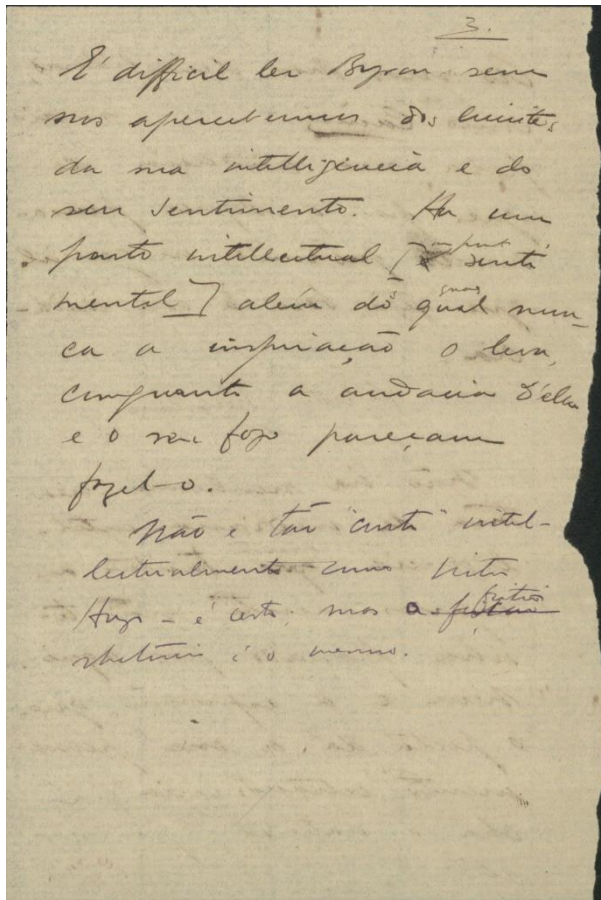 3.
É difficil ler Byron sem
nos apercebermos dos limites
da sua intelligencia e do
seu sentimento. Ha um
ponto intellectual [e senti
mental] além do qual nun-
ca a inspiração o leva,
emquanto a audacia d'ella
e o seu fogo pareçam
fazel-o.
Não é tão "curto" intel-
lectualmente como Victor
Hugo – é certo; mas a
rhetorica é o mesmo.